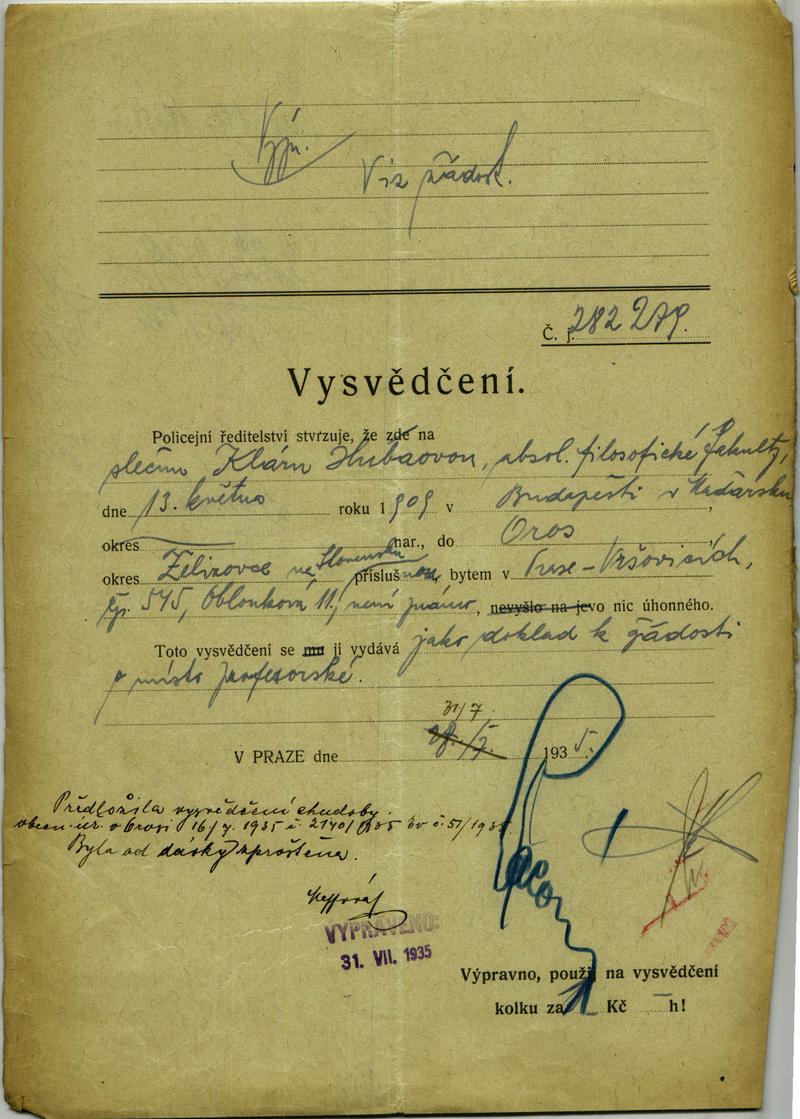 Viz žádost.
Č. j. 282 279.
Vysvědčení.
Policejní ředitelství stvrzuje, že zde na
slečnu Kláru Hubaovou, absol. filosofické fakulty,
dne 13. května roku 1909 v Budapešti v Maďarsku,
okres nar., do Oros
okres Želizovce na Slovensku příslušnou, bytem v Praze-Vršovicích,
čp. 545, Oblouková 11, není známo, nevyšlo na jevo nic úhonného.
Toto vysvědčení se mu jí vydává jako doklad k žádosti
o místo profesorské.
31/7
V PRAZE dne 1935.
Předložila vysvědčení chudoby
obecn. úř. v Orosi 16/7. 1935 č. 2140/1935 ev č. 51/1935
Byla od dávky zproštěna.
VYPRAVENO:
31. VII. 1935
Výpravno, použij na vysvědčení
kolku za 1 Kč — h!